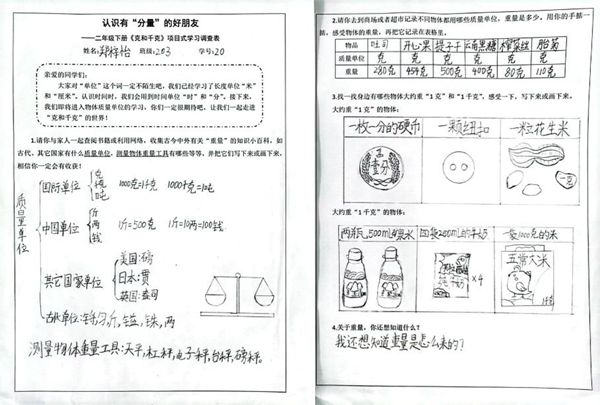 认识有“分量”的好朋友
——二年级下册《克和千克》项目式学习调查表
姓名:郑梓怡 班级:203 学号:20
亲爱的同学们:
大家对“单位”这个词一定不陌生吧,我们已经学习了长度单位“米”
和“厘米”。认识时间时,我们会用到时间单位“时”和“分”。接下来,
我们即将进入物体质量单位的学习,你们一定很期待吧,让我们一起走进
“克和千克”的世界!
1.请你与家人一起查阅书籍或利用网络,收集古今中外有关“重量”的知识小百科,如
古代、其它国家有什么质量单位,测量物体重量工具有哪些等等,并把它们写下来或画下来,
相信你一定会有收获!
质量单位
国际单位 克 千克 吨 1000克=1千克 1000千克=1吨
中国单位 斤 两 钱 1斤=500克 1斤=10两=100钱
其它国家单位 美国:磅
日本:贯
英国:盎司
古代单位:锊,勺,斤,镒,铢,两
测量物体重量工具:天平,杠秤,电子秤,台秤,磅秤。
2.请你去到商场或者超市记录不同物体都用哪些质量单位,重量是多少。用你的手掂一
掂,感受物体的重量,再把它记录在表格里。
物品 吐司 开心果 提子干 云南黑糖 榨菜丝
质量单位 克 克 克 克 克 克
重量 280克 454克 500克 400克 80克 110克
3.找一找身边有哪些物体大约重“1克”和“1千克”,感受一下,写下来或画下来。
大约重“1克”的物体:
一枚一分的硬币 一颗纽扣 一粒花生米
壹分
大约重“1千克”的物体:
两瓶500mL的果水 四袋250mL的牛奶 一袋1000克的米
×4
五常大米
1千克
4.关于重量,你还想知道什么?
我还想知道重量是怎么来的?